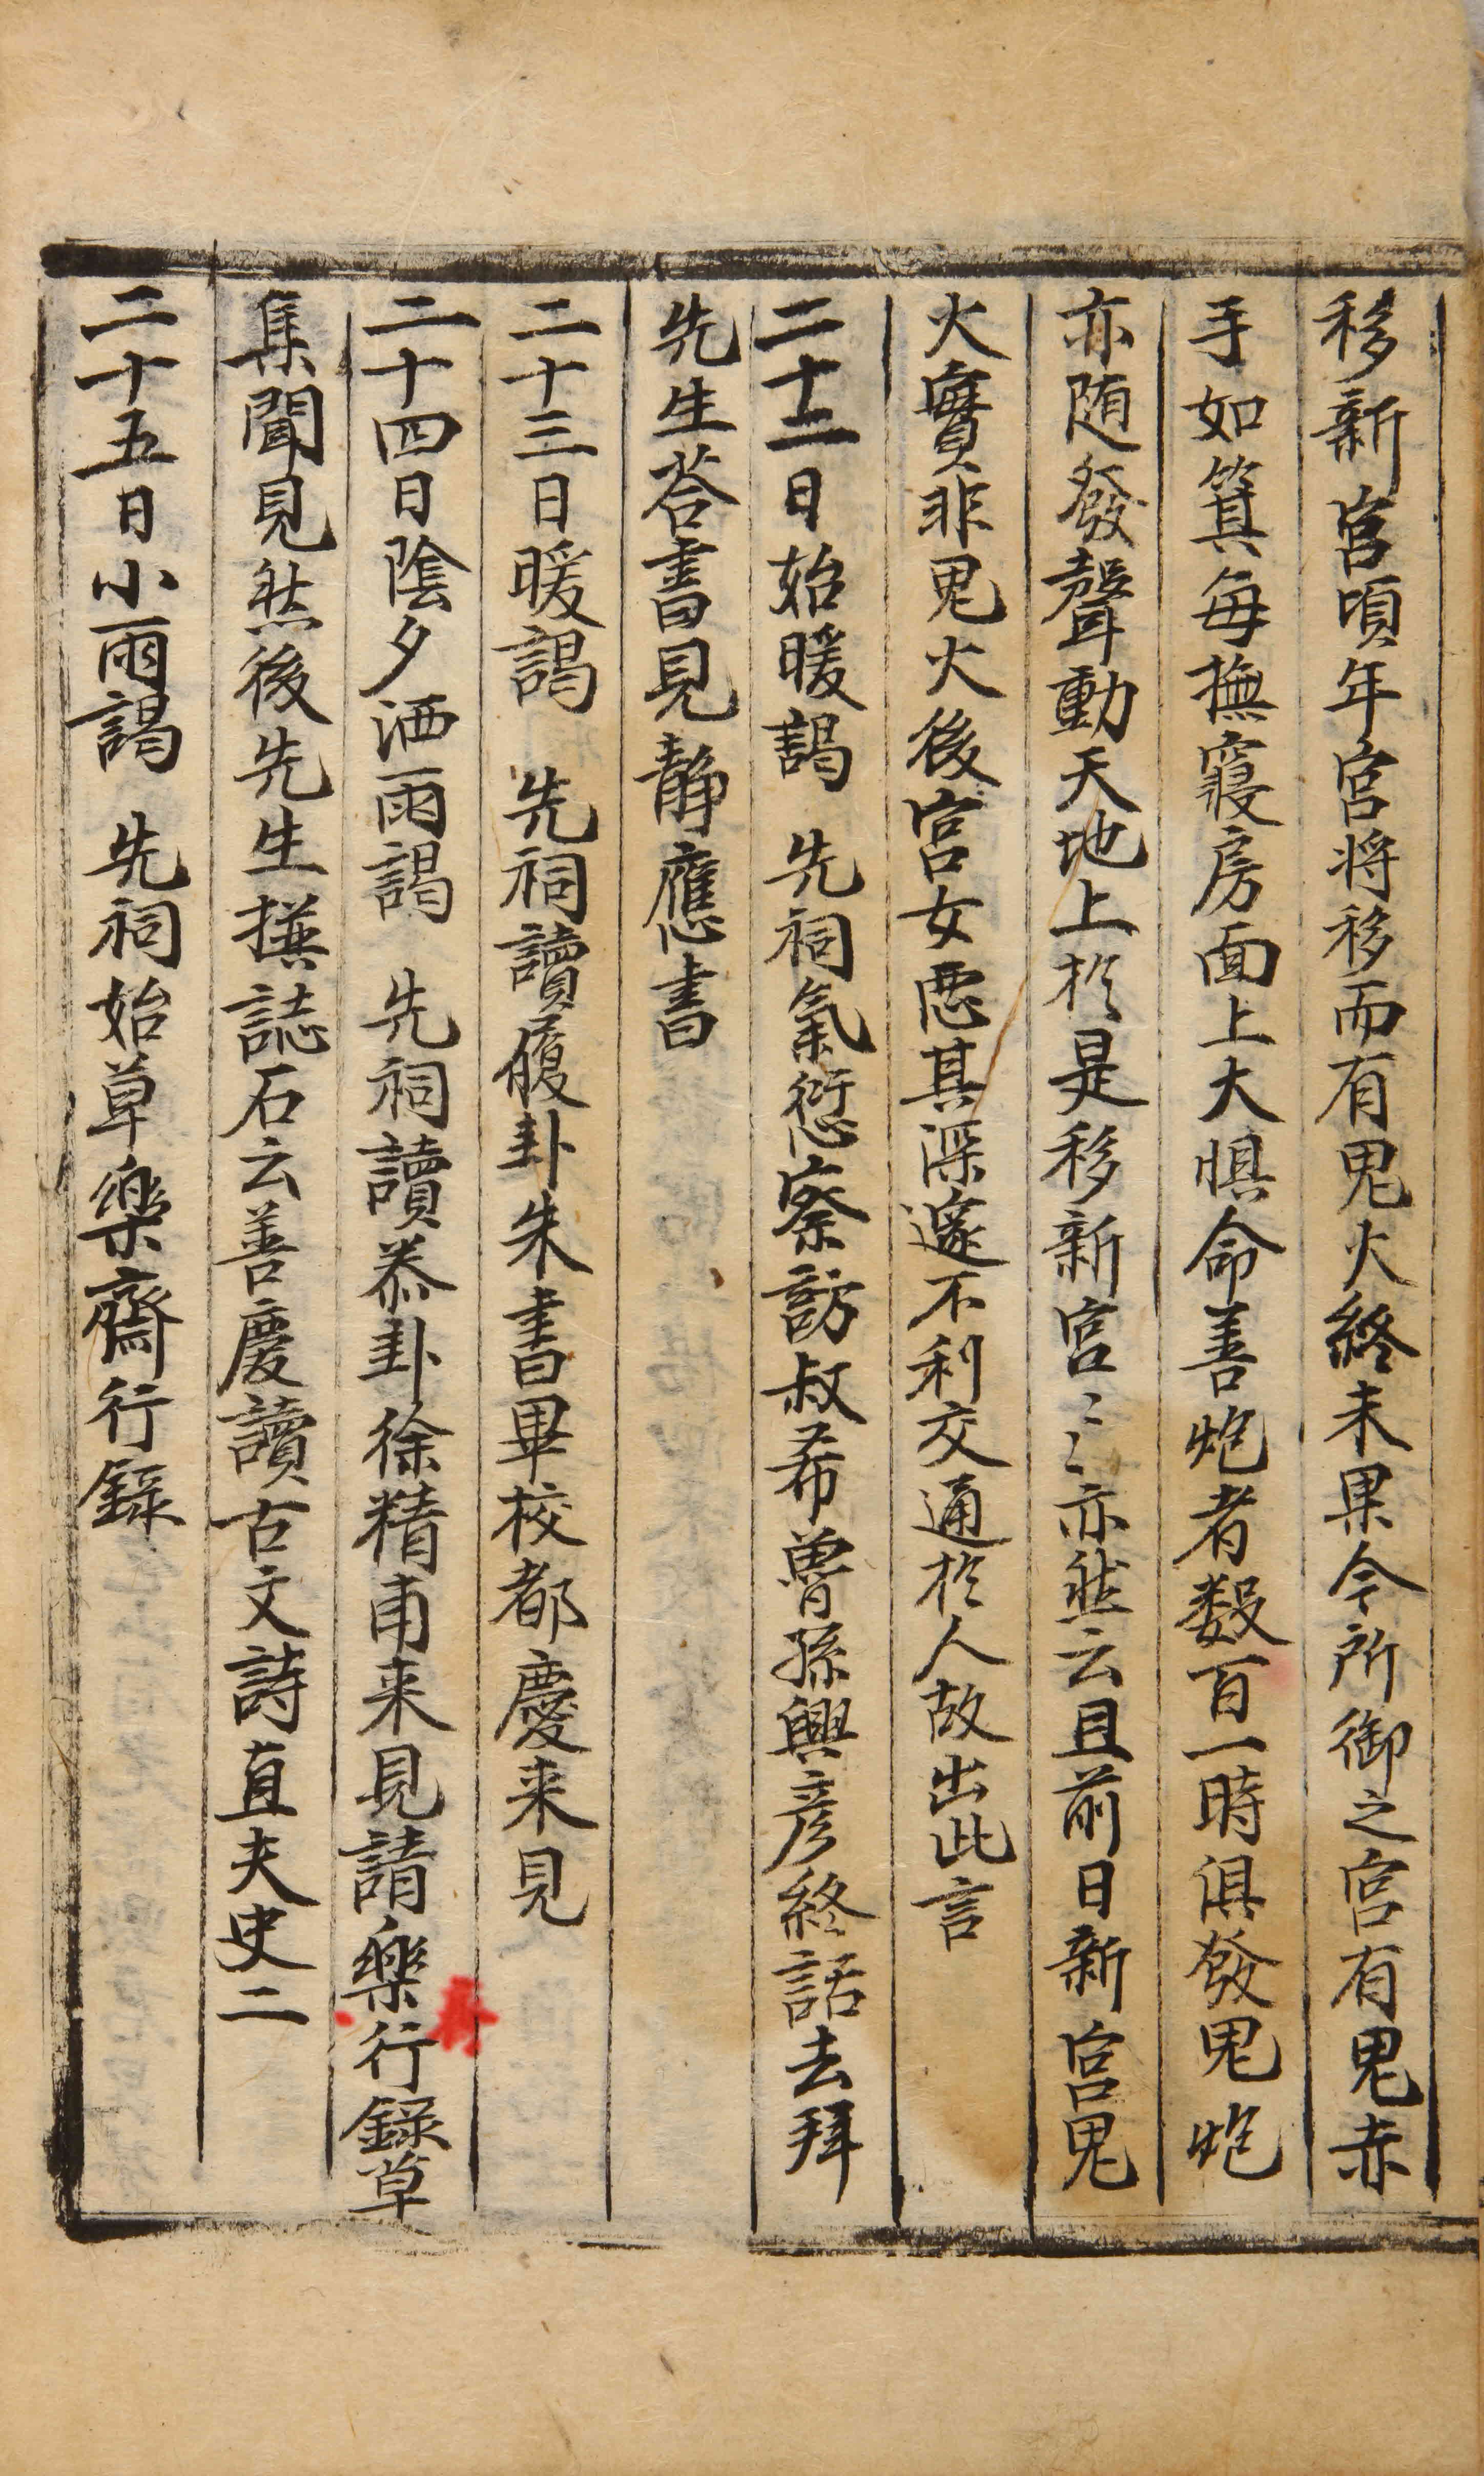 移新宮頃年宮將移而有鬼火終未果今所御之宮有鬼赤
手如箕每撫寢房面上大惧命善炮者数百一時俱發鬼炮
亦随發聲動天地上於是移新宮〻亦然云且前日新宮鬼
火實非鬼火後宮女惡其深邃不利交通於人故出此言
二十二日始暖謁 先祠氣愆察訪叔希曾孫興彦終話去拜
先生答書見靜應書
二十三日暖謁 先祠讀履卦朱書畢校都慶来見
二十四日陰夕洒雨謁 先祠讀泰卦徐精甫来見請樂行錄草
集聞見然後先生撰誌石云善慶讀古文詩直夫史二
二十五日小雨謁 先祠始草樂齋行錄